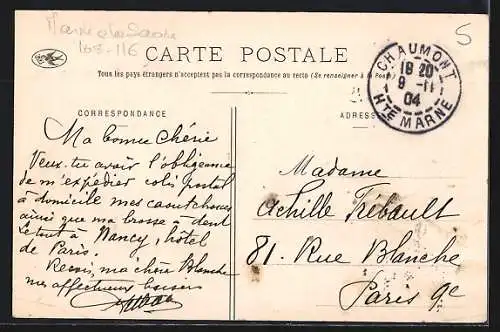 168-116
5
CARTE POSTALE
Tous les pays étrangers n'acceptent pas la correspondance au recto (Se renseigner à la Poste)
CHAUMONT
18 20
9 -11
04
HTE MARNE
CORRESPONDANCE
ADRESSE
Ma bonne chérie
Veux-tu avoir l'obligeance
de m'expédier colis postal
à domicile mes caoutchoucs
ainsi que ma brosse à dent
le tout à Nancy, hôtel
de Paris.
Reçois, ma chère Blanche
mes affectueux baisers
Madame
Achille Trébault
81. Rue Blanche
Paris 9e